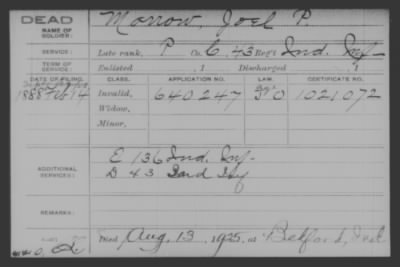 DEAD
NAME OF SOLDIER: Morrow, Joel P.
SERVICE: Late rank, P Co. G, 43 Reg't Ind. Inf
TERM OF SERVICE: Enlisted , 1 Discharged , 1
DATE OF FILING. CLASS. APPLICATION NO. LAW. CERTIFICATE NO.
1888 Feb 14 Invalid, 640247 1021072
Widow,
Minor,
ADDITIONAL SERVICES: E 136 Ind. Inf.
D 43 Ind Inf
REMARKS:
Died Aug. 13, 1925, at Bedford, Ind